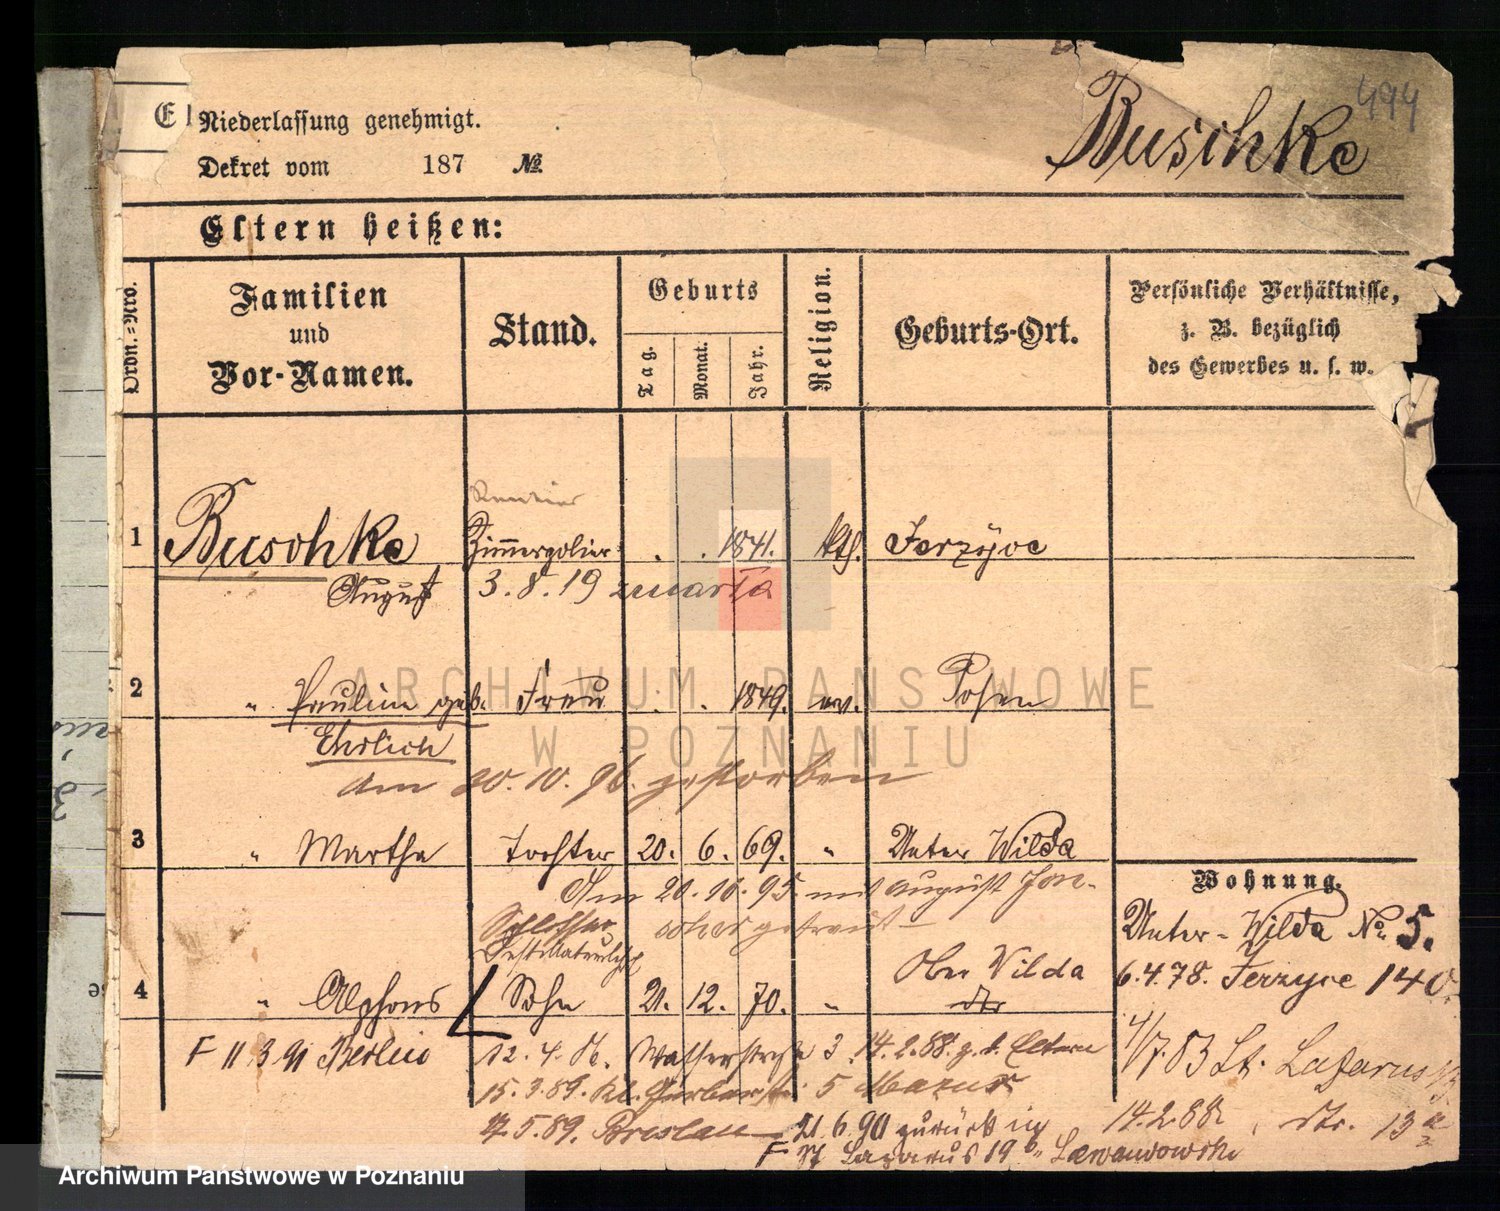 494
Buschke
Niederlassung genehmigt.
Dekret vom 187 №
Eltern heißen:
Ordn.=Nro.
Familien
und
Vor-Namen.
Stand.
Geburts
Tag.
Monat.
Jahr.
Religion.
Geburts-Ort.
Persönliche Verhältnisse,
z. B. bezüglich
des Gewerbes u. s. w.
Rentier
1 Buschke Zimmerpolier . . 1841. kth. Jerzyce
August 3.8.19 zmarła
2 " Pauline geb. Frau . . 1849. ev. Posen
Ehrlich
am 20.10.96. gestorben
3 " Martha Tochter 20. 6. 69. " Unter Wilda
Am 20.10.95 mit August
getraut
Schlosser
4 " Alphons Sohn 21. 12. 70. " Ober Wilda
dto
F 11 3 91 Berlin 12.4. Wallerstraße 3. 14.2.88. z. d. Eltern
15.3.89. Kl. Gerberstr. 5 Mazur
17.5.89. Breslau 21.6.90 zurück
F 27 Lazarus 19 b. Lewandowski
Wohnung.
Unter-Wilda No. 5.
6.4.78. Jerzyce 140.
4/7.83 St. Lazarus 13
14.2.88. dto. 13a
ARCHIWUM PAŃSTWOWE
W POZNANIU
Archiwum Państwowe w Poznaniu